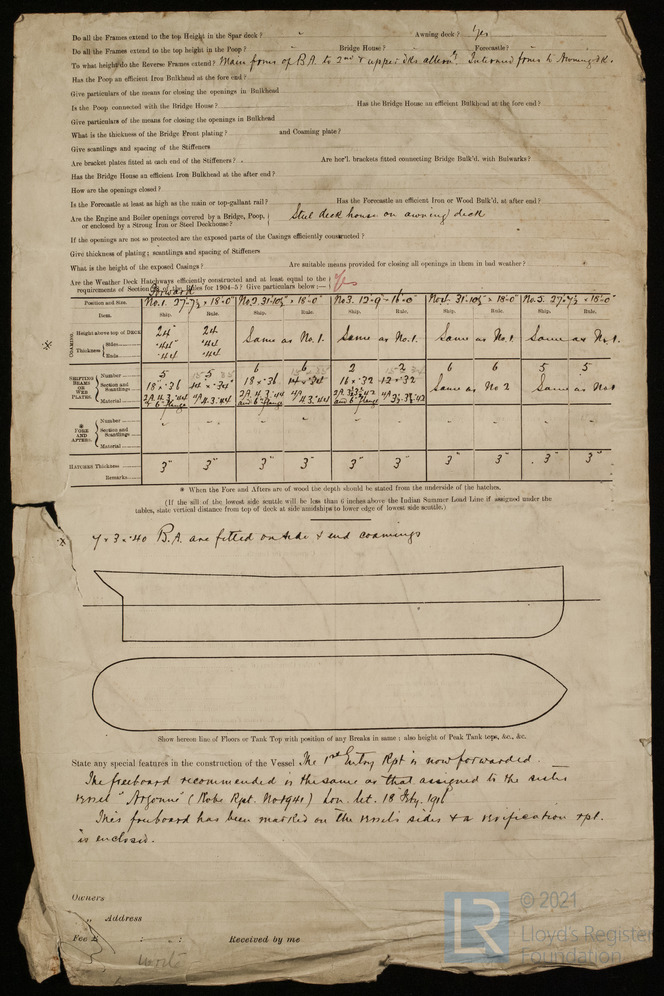 Do all the Frames extend to the top Height in the Spar deck? " Awning deck? Yes
Do all the Frames extend to the top height in the Poop? Bridge House? Forecastle?
To what height do the Reverse Frames extend? Main frms of B.A. to 2nd & upper dks altern. Intermed frms to Awning dk.
Has the Poop an efficient Iron Bulkhead at the fore end?
Give particulars of the means for closing the openings in Bulkhead
Is the Poop connected with the Bridge House? Has the Bridge House an efficient Bulkhead at the fore end?
Give particulars of the means for closing the openings in Bulkhead
What is the thickness of the Bridge Front plating? and Coaming plate?
Give scantlings and spacing of the Stiffeners
Are bracket plates fitted at each end of the Stiffeners? Are hor'l. brackets fitted connecting Bridge Bulk'd. with Bulwarks?
Has the Bridge House an efficient Iron Bulkhead at the after end?
How are the openings closed?
Is the Forecastle at least as high as the main or top-gallant rail? Has the Forecastle an efficient Iron or Wood Bulk'd. at after end?
Are the Engine and Boiler openings covered by a Bridge, Poop, or enclosed by a Strong Iron or Steel Deckhouse? Steel deck house on awning deck
If the openings are not so protected are the exposed parts of the Casings efficiently constructed?
Give thickness of plating; scantlings and spacing of Stiffeners
What is the height of the exposed Casings? Are suitable means provided for closing all openings in them in bad weather?
Are the Weather Deck Hatchways efficiently constructed and at least equal to the requirements of Section of the Rules for 1904-5? Give particulars below:— Yes
Forward
Position and Size. No. 1. 27-7½ × 18-0" No. 2. 31-10½ × 18-0" No 3. 12-9 × 16-0" No 4. 31-10½ × 18-0" No. 5. 27-7½ × 18-0"
Item. Ship. Rule. Ship. Rule. Ship. Rule. Ship. Rule. Ship. Rule.
COAMING Height above top of DECK 24" 24 Same as No. 1. Same as No. 1. Same as No. 1. Same as No. 1.
Thickness Sides .44" .44
Ends .44 .44
SHIFTING BEAMS OR WEB PLATES Number 5 5 6 6 2 3 6 6 5 5
Section and Scantlings 18 × .36 14 × .34 18 × .36 14 × .34 16 × .32 12 × .32 Same as No 2 Same as No 1
Material
* FORE AND AFTERS. Number
Section and Scantlings
Material
HATCHES Thickness 3" 3" 3" 3" 3" 3" 3" 3" 3" 3"
Remarks
* When the Fore and Afters are of wood the depth should be stated from the underside of the hatches.
(If the sill of the lowest side scuttle will be less than 6 inches above the Indian Summer Load Line if assigned under the
tables, state vertical distance from top of deck at side amidships to lower edge of lowest side scuttle.)
7 × 3 × .40 B.A. are fitted on side & end coamings
Show hereon line of Floors or Tank Top with position of any Breaks in same; also height of Peak Tank tops, &c., &c.
State any special features in the construction of the Vessel The 1st Entry Rpt is now forwarded.
The freeboard recommended is the same as that assigned to the sister
vessel "Argonne" (Kobe Rpt. No 1941) Lon. let. 18 Feby. 1916
This freeboard has been marked on the vessel's sides & a verification rpt.
is enclosed.
Owners
" Address
Fee £ : : Received by me
LR
© 2021
Lloyd's Register
Foundation